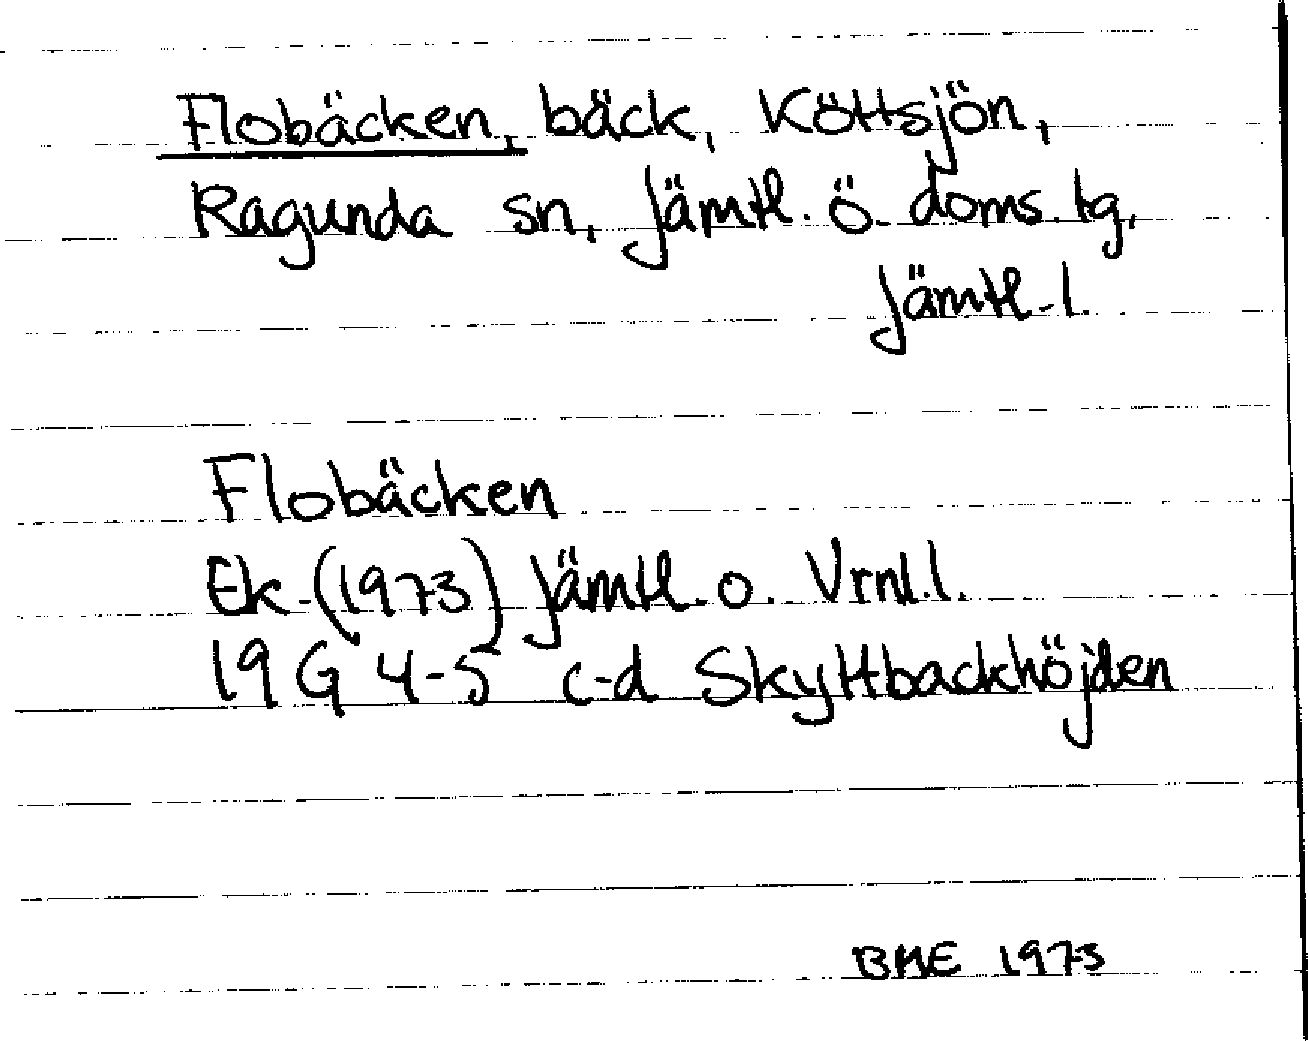 Flobäcken, bäck, Köttsjön,
Ragunda sn, Jämtl. ö. doms. tg,
Jämtl. l.
Flobäcken
Ek (1973) Jämtl. o. Vrnl. l.
19 G 4-5 c-d Skyttbackhöjden
BME 1973